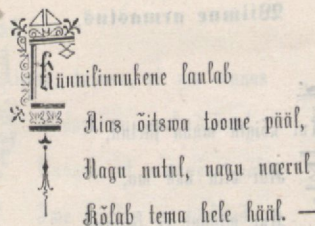 Künnilinnukene laulab
Aias õitswa toome pääl,
Nagu nutul, nagu naerul
Kõlab tema hele hääl. —